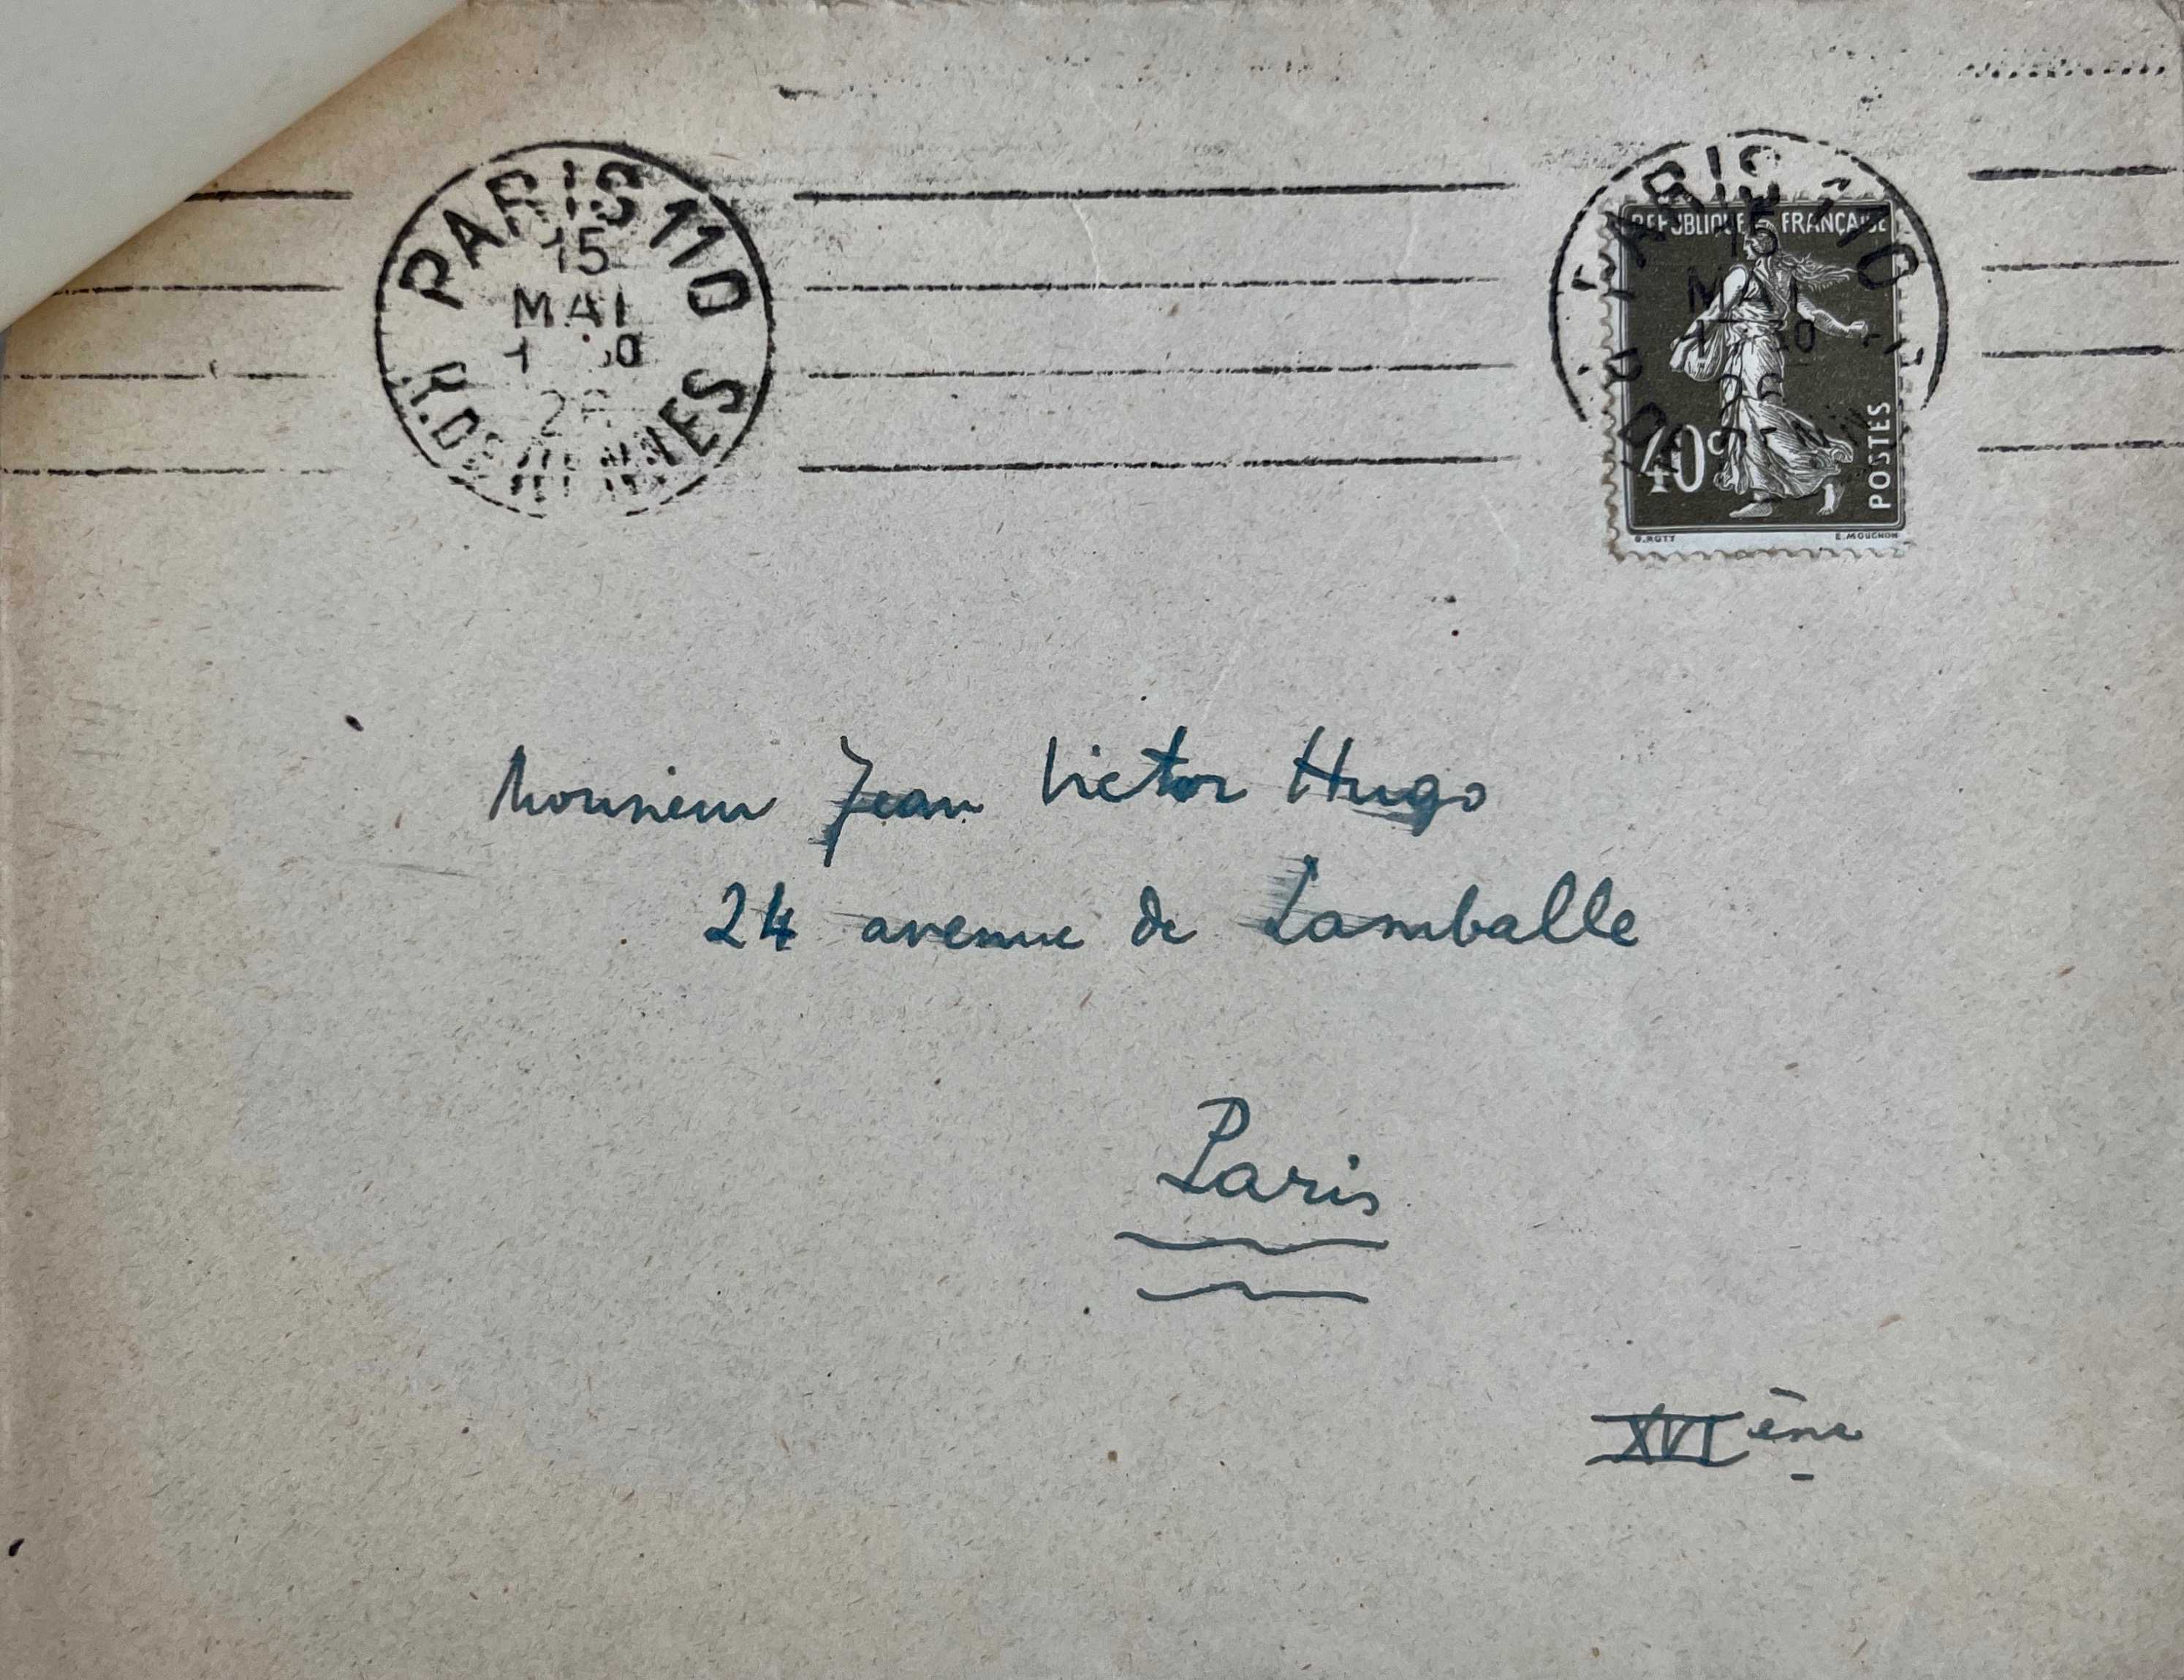 PARIS 110
15
MAI
26
R. DE RENNES
PARIS 110
15
MAI
REPUBLIQUE FRANÇAISE
40c
POSTES
O. ROTY
E. MOUCHON
Monsieur Jean Victor Hugo
24 avenue de Lamballe
Paris
XVI ème